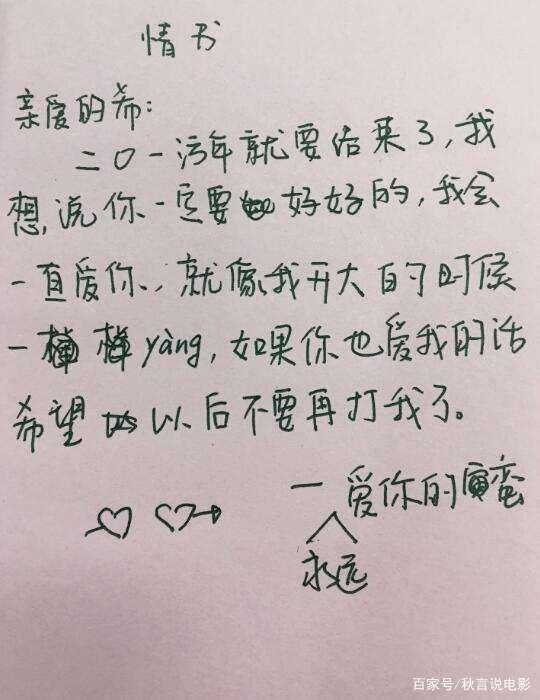 情书
亲爱的希：
二〇一污年就要结束了，我
想说你一定要好好的，我会
一直爱你，就像我开大的时候
一样yàng，如果你也爱我的话
希望以后不要再打我了。
一爱你的寅蛮
永远
百家号/秋言说电影